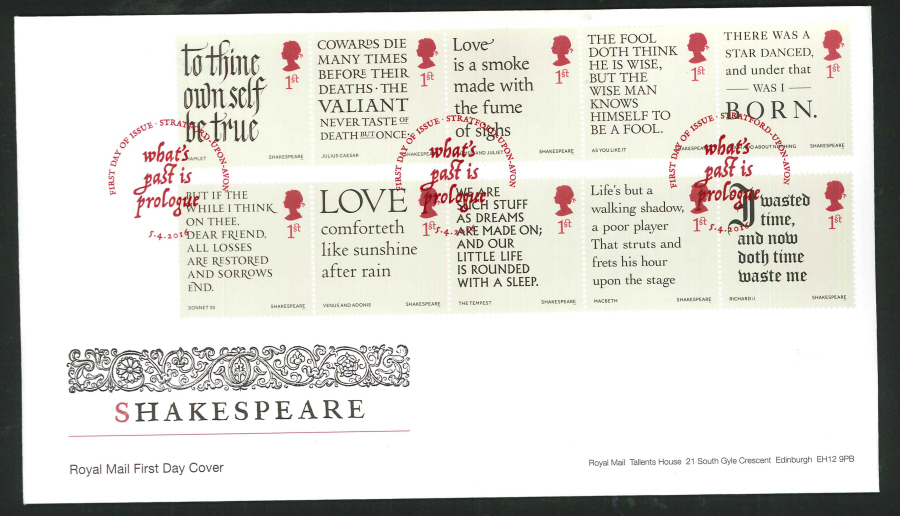 to thine
own self
be true
1st
HAMLET SHAKESPEARE
COWARDS DIE
MANY TIMES
BEFORE THEIR
DEATHS · THE
VALIANT
NEVER TASTE OF
DEATH BUT ONCE·
1st
JULIUS CAESAR SHAKESPEARE
Love
is a smoke
made with
the fume
of sighs
1st
AND JULIET SHAKESPEARE
THE FOOL
DOTH THINK
HE IS WISE,
BUT THE
WISE MAN
KNOWS
HIMSELF TO
BE A FOOL.
1st
AS YOU LIKE IT SHAKESPEARE
THERE WAS A
STAR DANCED,
and under that
WAS I
BORN.
1st
ABOUT NOTHING SHAKESPEARE
FIRST DAY OF ISSUE · STRATFORD-UPON-AVON
what's
past is
prologue
5.4.2016
FIRST DAY OF ISSUE · STRATFORD-UPON-AVON
what's
past is
prologue
5.4.2016
FIRST DAY OF ISSUE · STRATFORD-UPON-AVON
what's
past is
prologue
5.4.2016
BUT IF THE
WHILE I THINK
ON THEE,
DEAR FRIEND,
ALL LOSSES
ARE RESTORED
AND SORROWS
END.
1st
SONNET 30 SHAKESPEARE
LOVE
comforteth
like sunshine
after rain
1st
VENUS AND ADONIS SHAKESPEARE
WE ARE
SUCH STUFF
AS DREAMS
ARE MADE ON;
AND OUR
LITTLE LIFE
IS ROUNDED
WITH A SLEEP.
1st
THE TEMPEST SHAKESPEARE
Life's but a
walking shadow,
a poor player
That struts and
frets his hour
upon the stage
1st
MACBETH SHAKESPEARE
I wasted
time,
and now
doth time
waste me
1st
RICHARD II SHAKESPEARE
SHAKESPEARE
Royal Mail First Day Cover
Royal Mail Tallents House 21 South Gyle Crescent Edinburgh EH12 9PB